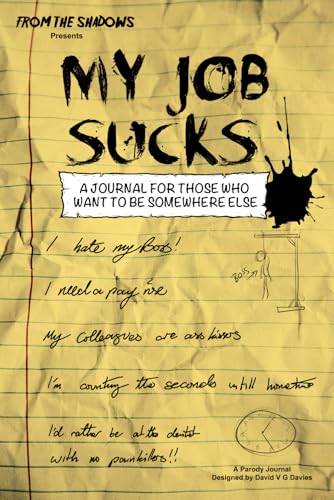 FROM THE SHADOWS
Presents
MY JOB
SUCKS
A JOURNAL FOR THOSE WHO
WANT TO BE SOMEWHERE ELSE
I hate my Boss!
BOSS
I need a pay rise
My Colleagues are ass kissers
I'm counting the seconds untill hometime
I'd rather be at the dentist
with no painkillers!!
A Parody Journal
Designed by David V G Davies